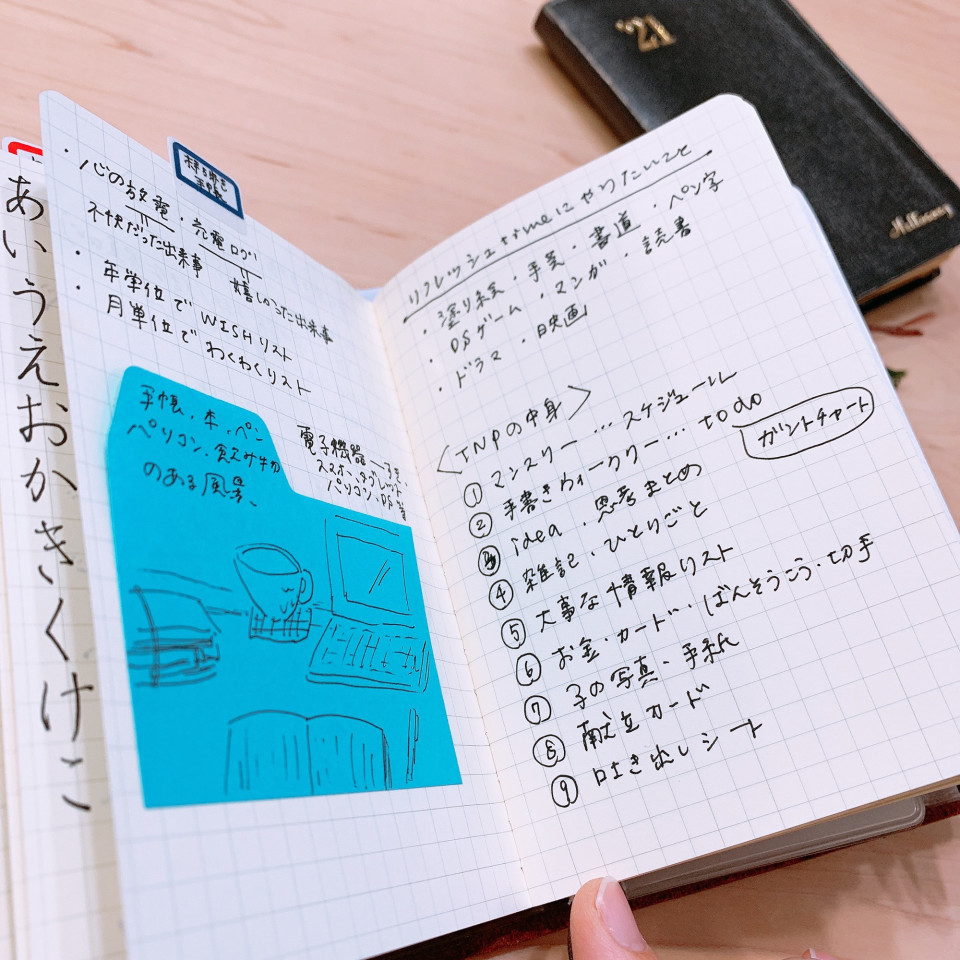 あいうえおかきくけこ
持ち歩き
手帳
・心の放電・充電ログ
不快だった出来事
嬉しかった出来事
・年単位でWISHリスト
・月単位でわくわくリスト
手帳、本、ペン
パソコン、飲み物
のある風景、
電子機器
スマホ、タブレット
パソコン、DS等
リフレッシュtimeにやりたいこと
・塗り絵・手芸・書道・ペン字
・DSゲーム・マンガ・読書
・ドラマ・映画
<TNPの中身>
① マンスリー…スケジュール
② 手書きウィークリー…to do
ガントチャート
③ idea・思考まとめ
④ 雑記・ひとりごと
⑤ 大事な情報リスト
⑥ お金・カード・ばんそうこう・切手
⑦ 子の写真・手紙
⑧ 献立カード
⑨ 吐き出しシート
'21